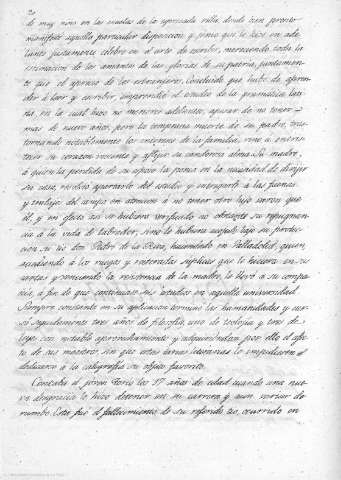 2
de muy niño en las escuelas de la expresada villa, donde bien pronto
manifestó aquella particular disposicion y genio que le hizo en ade
lante justamente célebre en el arte de escribir, mereciendo toda la
estimacion de los amantes de las glorias de su patria, juntamen
te que el aprecio de los extrangeros. Concluido que hubo de apren
der á leer y escribir, emprendió el estudio de la gramática lati
na, en la cual hizo no menores adelantos, apesar de no tener
mas de nueve años, pero la temprana muerte de su padre, tras
tornando notablemente los intereses de la familia, vino á entris
tecer su corazon inocente y afligir su candorosa alma. Su madre,
á quien la perdida de su esposo la ponia en la necesidad de dirigir
su casa, resolvió apartarle del estudio y entregarle á las faenas
y trabajos del campo en atencion á no tener otro hijo varon que
él, y en efecto asi se hubiera verificado no obstante su repugnan
cia á la vida de labrador, sino le hubiera acogido bajo su protec
cion su tio don Pedro de la Riva, hacendado en Valladolid, quien,
accediendo á los ruegos y reiteradas súplicas que le hiciera en sus
cartas y venciendo la resistencia de la madre, le llevó á su compa
ñia, á fin de que continuase sus estudios en aquella universidad.
Siempre constante en su aplicacion terminó las humanidades y cur
só seguidamente tres años de filosofia, uno de teologia y tres de
leyes con notable aprovechamiento y adquiriéndose por ello el afec
to de sus maestros, sin que estas tareas literarias le impidiesen el
dedicarse á la caligrafia su objeto favorito.
Contaba el jóven Torio los 17 años de edad cuando una nue
va desgracia le hizo detener en su carrera y aun variar de
rumbo. Esta fué el fallecimiento de su referido tio, ocurrido en